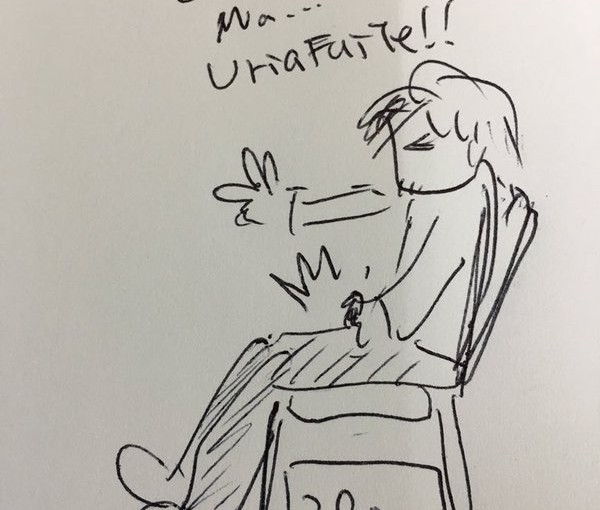 Ma...
UriaFuiTe!!